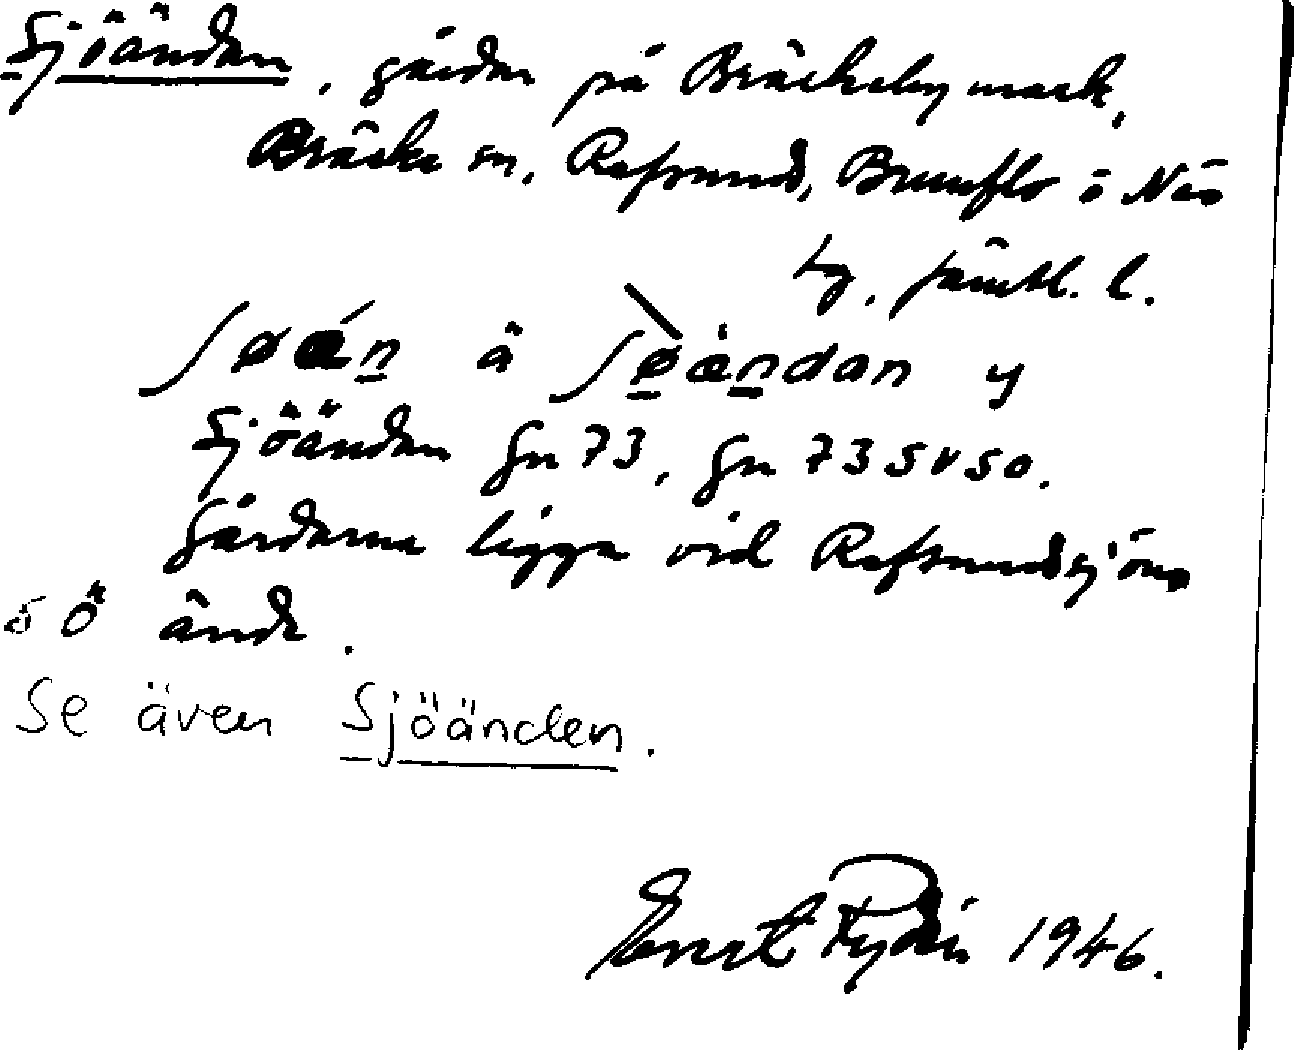 Sjöändan, gårdar på Bräckeby mark,
Bräcke sn, Refsunds, Brunflo o Näs
tg, Jämtl. l.
ʃøæ̀n å ʃøæ̀ndan y
Sjöändan Gn 73, Gn 73 SvSO.
Gårdarna ligga vid Refsundssjöns
SÖ ände.
Se även Sjöänden.
Ernst 1946.